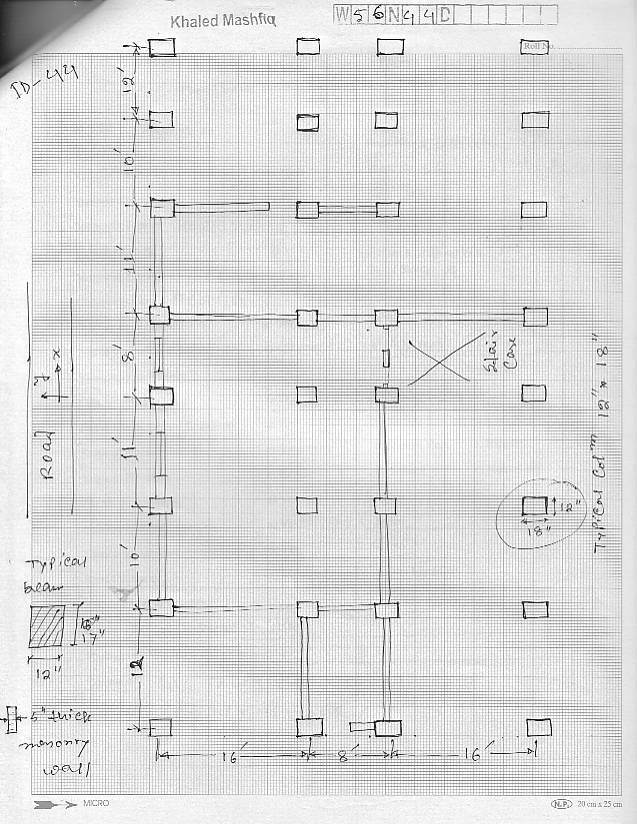 Khaled Mashfiq
W56N44D
Roll No.
ID-44
12'
10'
11'
8'
11'
10'
12
Road
y
x
Stair
Case
Typical Colm 12" x 18"
12"
18"
Typical
beam
17"
12"
5" thick
masonry
wall
16'
8'
16'
MICRO
N.P.
20 cm x 25 cm